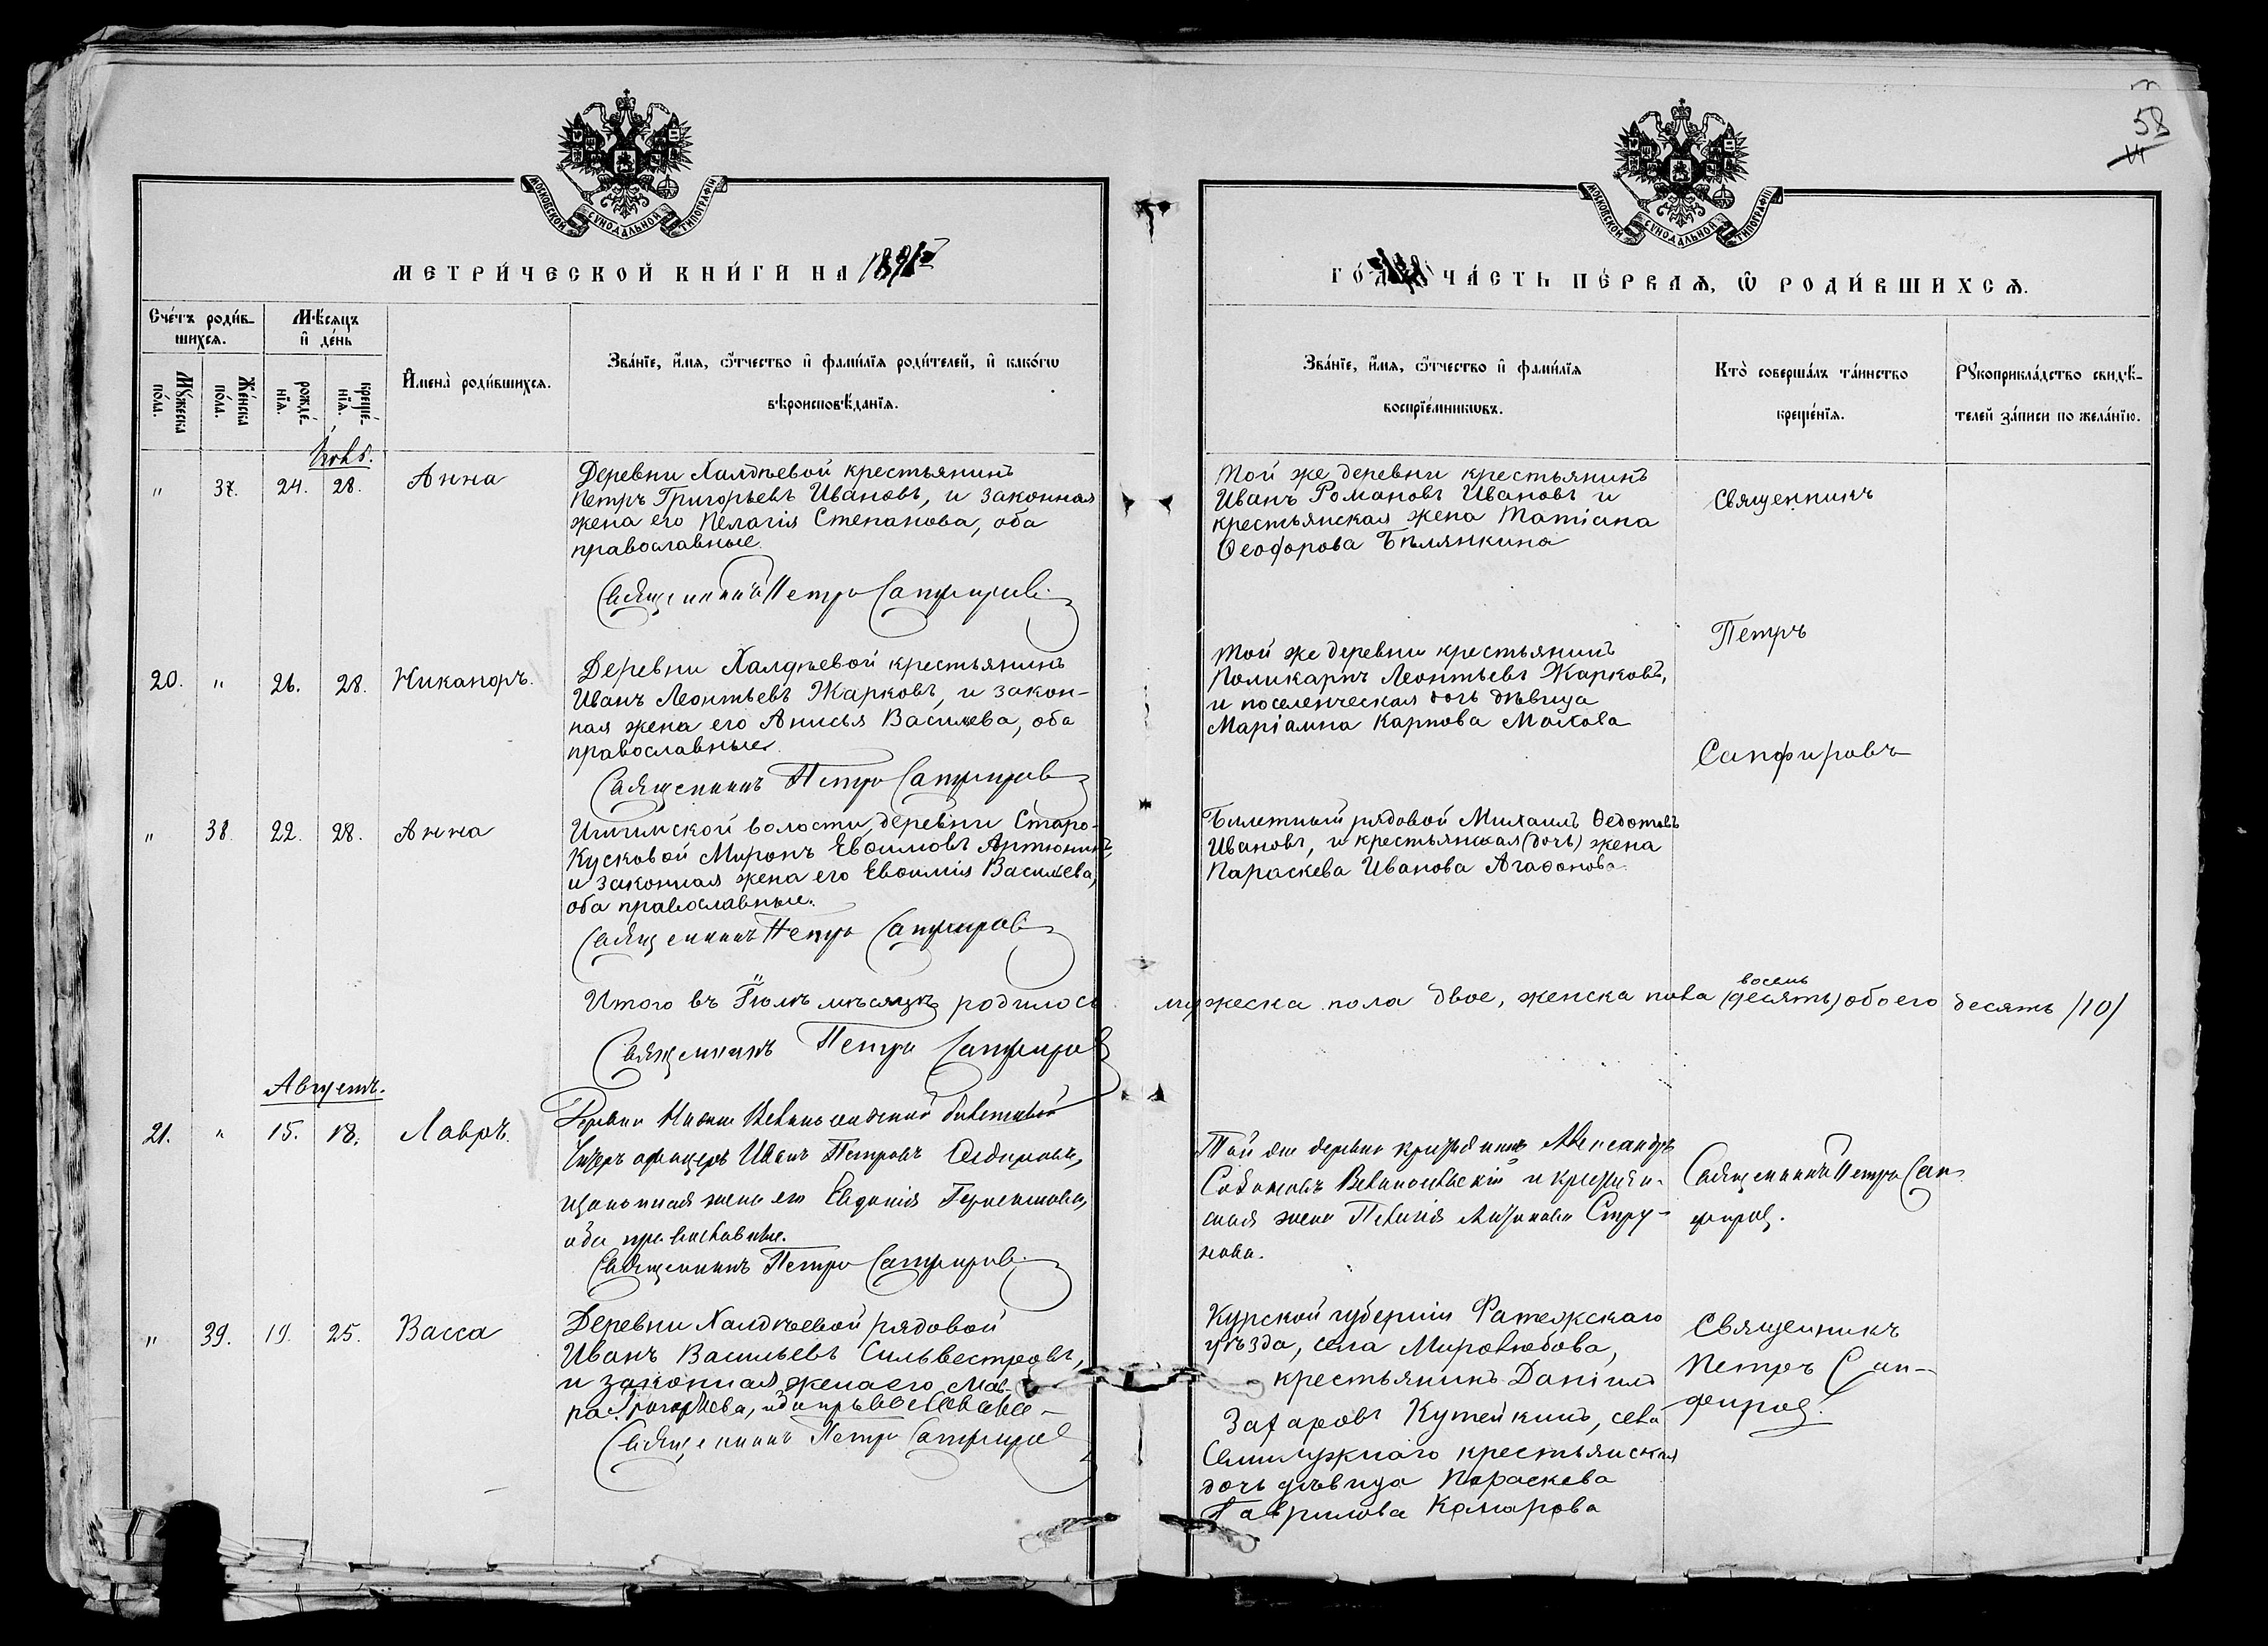 58
МОСКОВСКОЙ СѴНОДАЛЬНОЙ ТИПОГРАФІИ
МОСКОВСКОЙ СѴНОДАЛЬНОЙ ТИПОГРАФІИ
МЕТРИ́ЧЕСКОЙ КНИ́ГИ НА
ЧА́СТЬ ПЕ́РВАѦ, Ѽ РОДИ́ВШИХСѦ.
Сче́тъ роди́в-
шихсѧ.
Мꙋ́жеска
по́ла.
Же́нска
по́ла.
Мѣ́сѧцъ
и҆ де́нь
рожде́-
нїѧ.
креще́-
нїѧ.
И҆мена̀ роди́вшихсѧ.
Зва́нїе, и҆́мѧ, ѻ҆́тчество и҆ фами́лїѧ роди́телей, и҆ како́гѡ
вѣроисповѣ́данїѧ.
Зва́нїе, и҆́мѧ, ѻ҆́тчество и҆ фами́лїѧ
воспрїе́мникѡвъ.
Кто̀ соверша́лъ та́инство
креще́нїѧ.
Рꙋкоприкла́дство свидѣ́-
телей за́писи по жела́нїю.
" 37. 24. 28. Анна
Деревни Халдѣевой крестьянинъ
Петръ Григорьевъ Ивановъ, и законная
жена его Пелагія Степанова, оба
православные.
Священникъ Петръ Сапфировъ
Той же деревни крестьянинъ
Иванъ Романовъ Ивановъ и
крестьянская жена Татіана
Ѳеодорова Бѣлянкина
Священникъ
Петръ
Сапфировъ
20. " 26. 28. Никаноръ.
Деревни Халдѣевой крестьянинъ
Иванъ Леонтьевъ Жарковъ, и закон-
ная жена его Анисья Васильева, оба
православные.
Священникъ Петръ Сапфировъ
Той же деревни крестьянинъ
Поликарпъ Леонтьевъ Жарковъ,
и поселенческая дочь дѣвица
Маріамна Карпова
" 38. 22. 28. Анна
волости, деревни Старо-
Кусковой Миронъ Евѳимовъ Артюнинъ,
и законная жена его Евѳимія Васильева,
оба православные.
Священникъ Петръ Сапфировъ
Билетный рядовой Михаилъ Ѳедотовъ
Ивановъ, и крестьянская (дочь) жена
Параскева Иванова Агаѳонова.
Итого въ Іюлѣ мѣсяцѣ родилось мужеска пола двое, женска пола (десять) восемь обоего десять /10/
Священникъ Петръ Сапфировъ
Августъ.
21. " 15. 18. Лавръ.
Деревни билетный
Унтеръ офицеръ Иванъ Петровъ
и законная жена его Евдокія
оба православные.
Священникъ Петръ Сапфировъ
Той же деревни крестьянинъ Александръ
и крестьян-
ская жена Стру-
нова.
Священникъ Петръ Сап-
фировъ.
" 39. 19. 25. Васса
Деревни Халдѣевой рядовой
Иванъ Васильевъ Сильвестровъ,
и законная жена его Мав-
ра Григорьева, оба православные
Священникъ Петръ Сапфировъ
Курской губерніи Фатежскаго
уѣзда, села Миролюбова,
крестьянинъ Даніилъ
Захаровъ Кутейкинъ, села
Семилужнаго крестьянская
дочь дѣвица Параскева
Гаврилова Комарова
Священникъ
Петръ Сап-
фировъ.